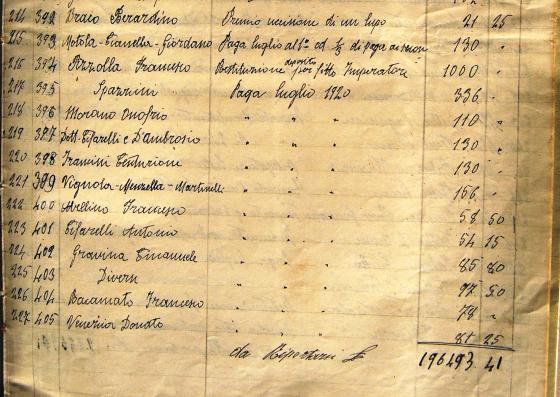 214 392 Bravo Berardino Premio uccisione di un lupo 21 25
215 393 Motola - Cianella - Giordano Paga luglio al 1º ed ½ di paga ai 130 "
216 394 Pizzolla Francesco Restituzione deposito per fitto Imperatore 1000 "
217 395 Spazzini Paga luglio 1920 336 "
218 396 Morano Onofrio " " " 110 "
219 397 Dott. Cifarelli e D'Ambrosio " " " 130 "
220 398 Centurione " " " 130 "
221 399 Vignola - Menzella - Martinelli " " " 166 "
222 400 Avellino Francesco " " " 58 50
223 401 Cifarelli Antonio " " " 54 15
224 402 Gravina Emanuele " " " 85 80
225 403 Diversi " " " 97 50
226 404 Francesco " " " 78 "
227 405 Venezia Donato " " " 81 25
da Riportarsi £ 196493 41